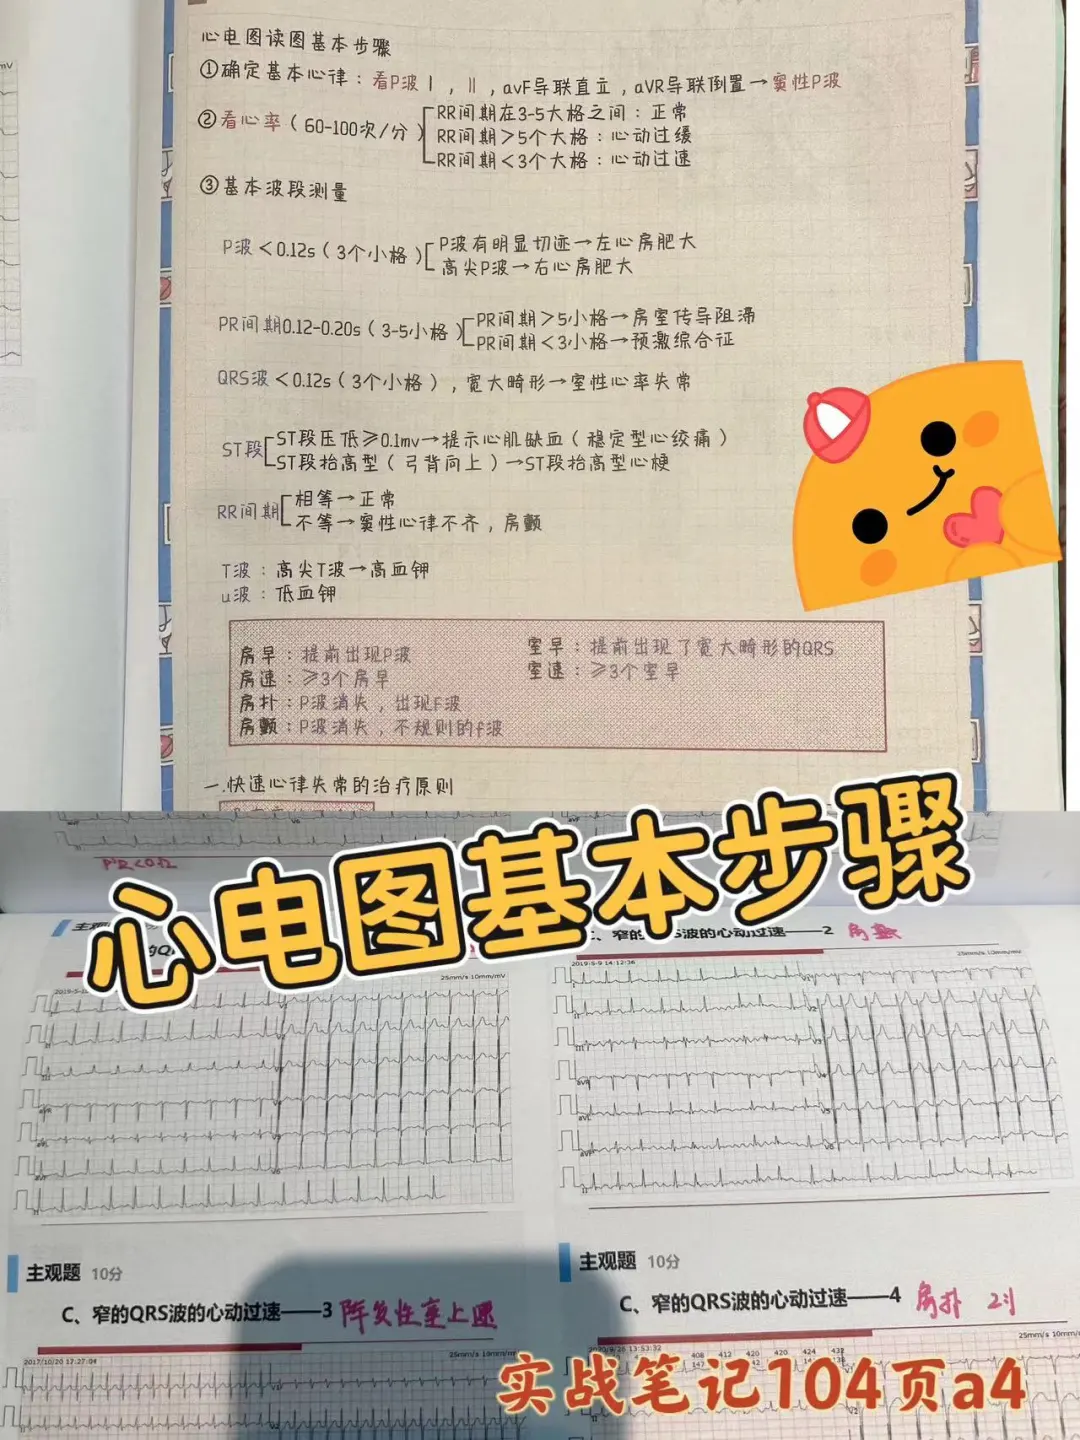 心电图读图基本步骤
①确定基本心律：看P波Ⅰ，Ⅱ，avF导联直立，aVR导联倒置→窦性P波
②看心率（60-100次/分）
RR间期在3-5大格之间：正常
RR间期>5个大格：心动过缓
RR间期<3个大格：心动过速
③基本波段测量
P波<0.12s（3个小格）
P波有明显切迹→左心房肥大
高尖P波→右心房肥大
PR间期0.12-0.20s（3-5小格）
PR间期>5小格→房室传导阻滞
PR间期<3小格→预激综合征
QRS波<0.12s（3个小格），宽大畸形→室性心率失常
ST段
ST段压低≥0.1mv→提示心肌缺血（稳定型心绞痛）
ST段抬高型（弓背向上）→ST段抬高型心梗
RR间期
相等→正常
不等→窦性心律不齐，房颤
T波：高尖T波→高血钾
u波：低血钾
房早：提前出现P波
房速：≥3个房早
房扑：P波消失，出现F波
房颤：P波消失，不规则的f波
室早：提前出现了宽大畸形的QRS
室速：≥3个室早
一.快速心律失常的治疗原则
心电图基本步骤
PR<0.12
25mm/s 10mm/mV
窄的QRS波的心动过速——2 房颤
2019-9-9 14:12:36
25mm/s 10mm/mV
主观题 10分
C、窄的QRS波的心动过速——3 阵发性室上速
2017/10/20 17:27:04
25mm/s 10mm/mV
主观题 10分
C、窄的QRS波的心动过速——4 房扑 2:1
25mm/s 10mm/mV
408 412 420 420 424 432
实战笔记104页a4